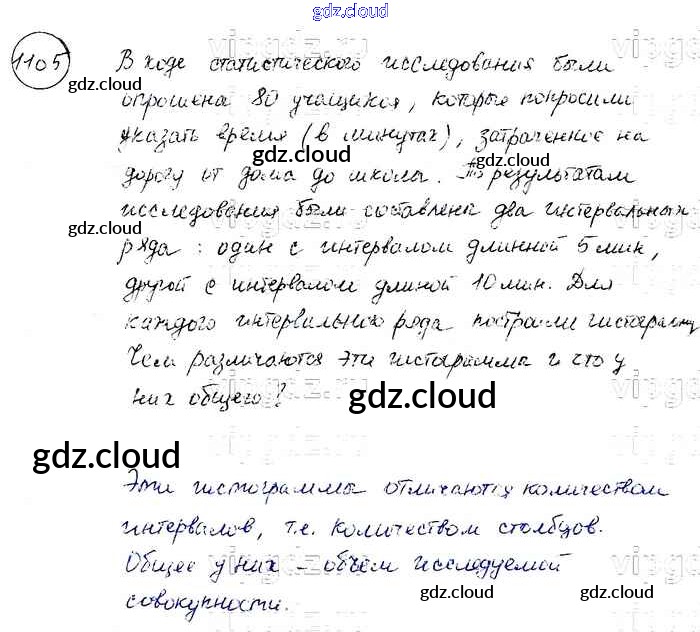 gdz.cloud
1105
В ходе статистического исследования были
опрошена 80 учащихся, которые попросили
указать время (в минутах), затраченное на
дорогу от дома до школы. По результатам
исследования были составлена два интервальных
ряда: один с интервалом длинной 5 мин,
другой с интервалом длиной 10 мин. Для
каждого интервального ряда построили гистограмму
Чем различаются эти гистограммы и что у
них общего?
gdz.cloud
gdz.cloud
gdz.cloud
gdz.cloud
gdz.cloud
gdz.cloud
gdz.cloud
Эти гистограммы отличаются количеством
интервалов, т.е. количеством столбцов.
Общее у них – объем исследуемой
совокупности.
gdz.cloud
gdz.cloud